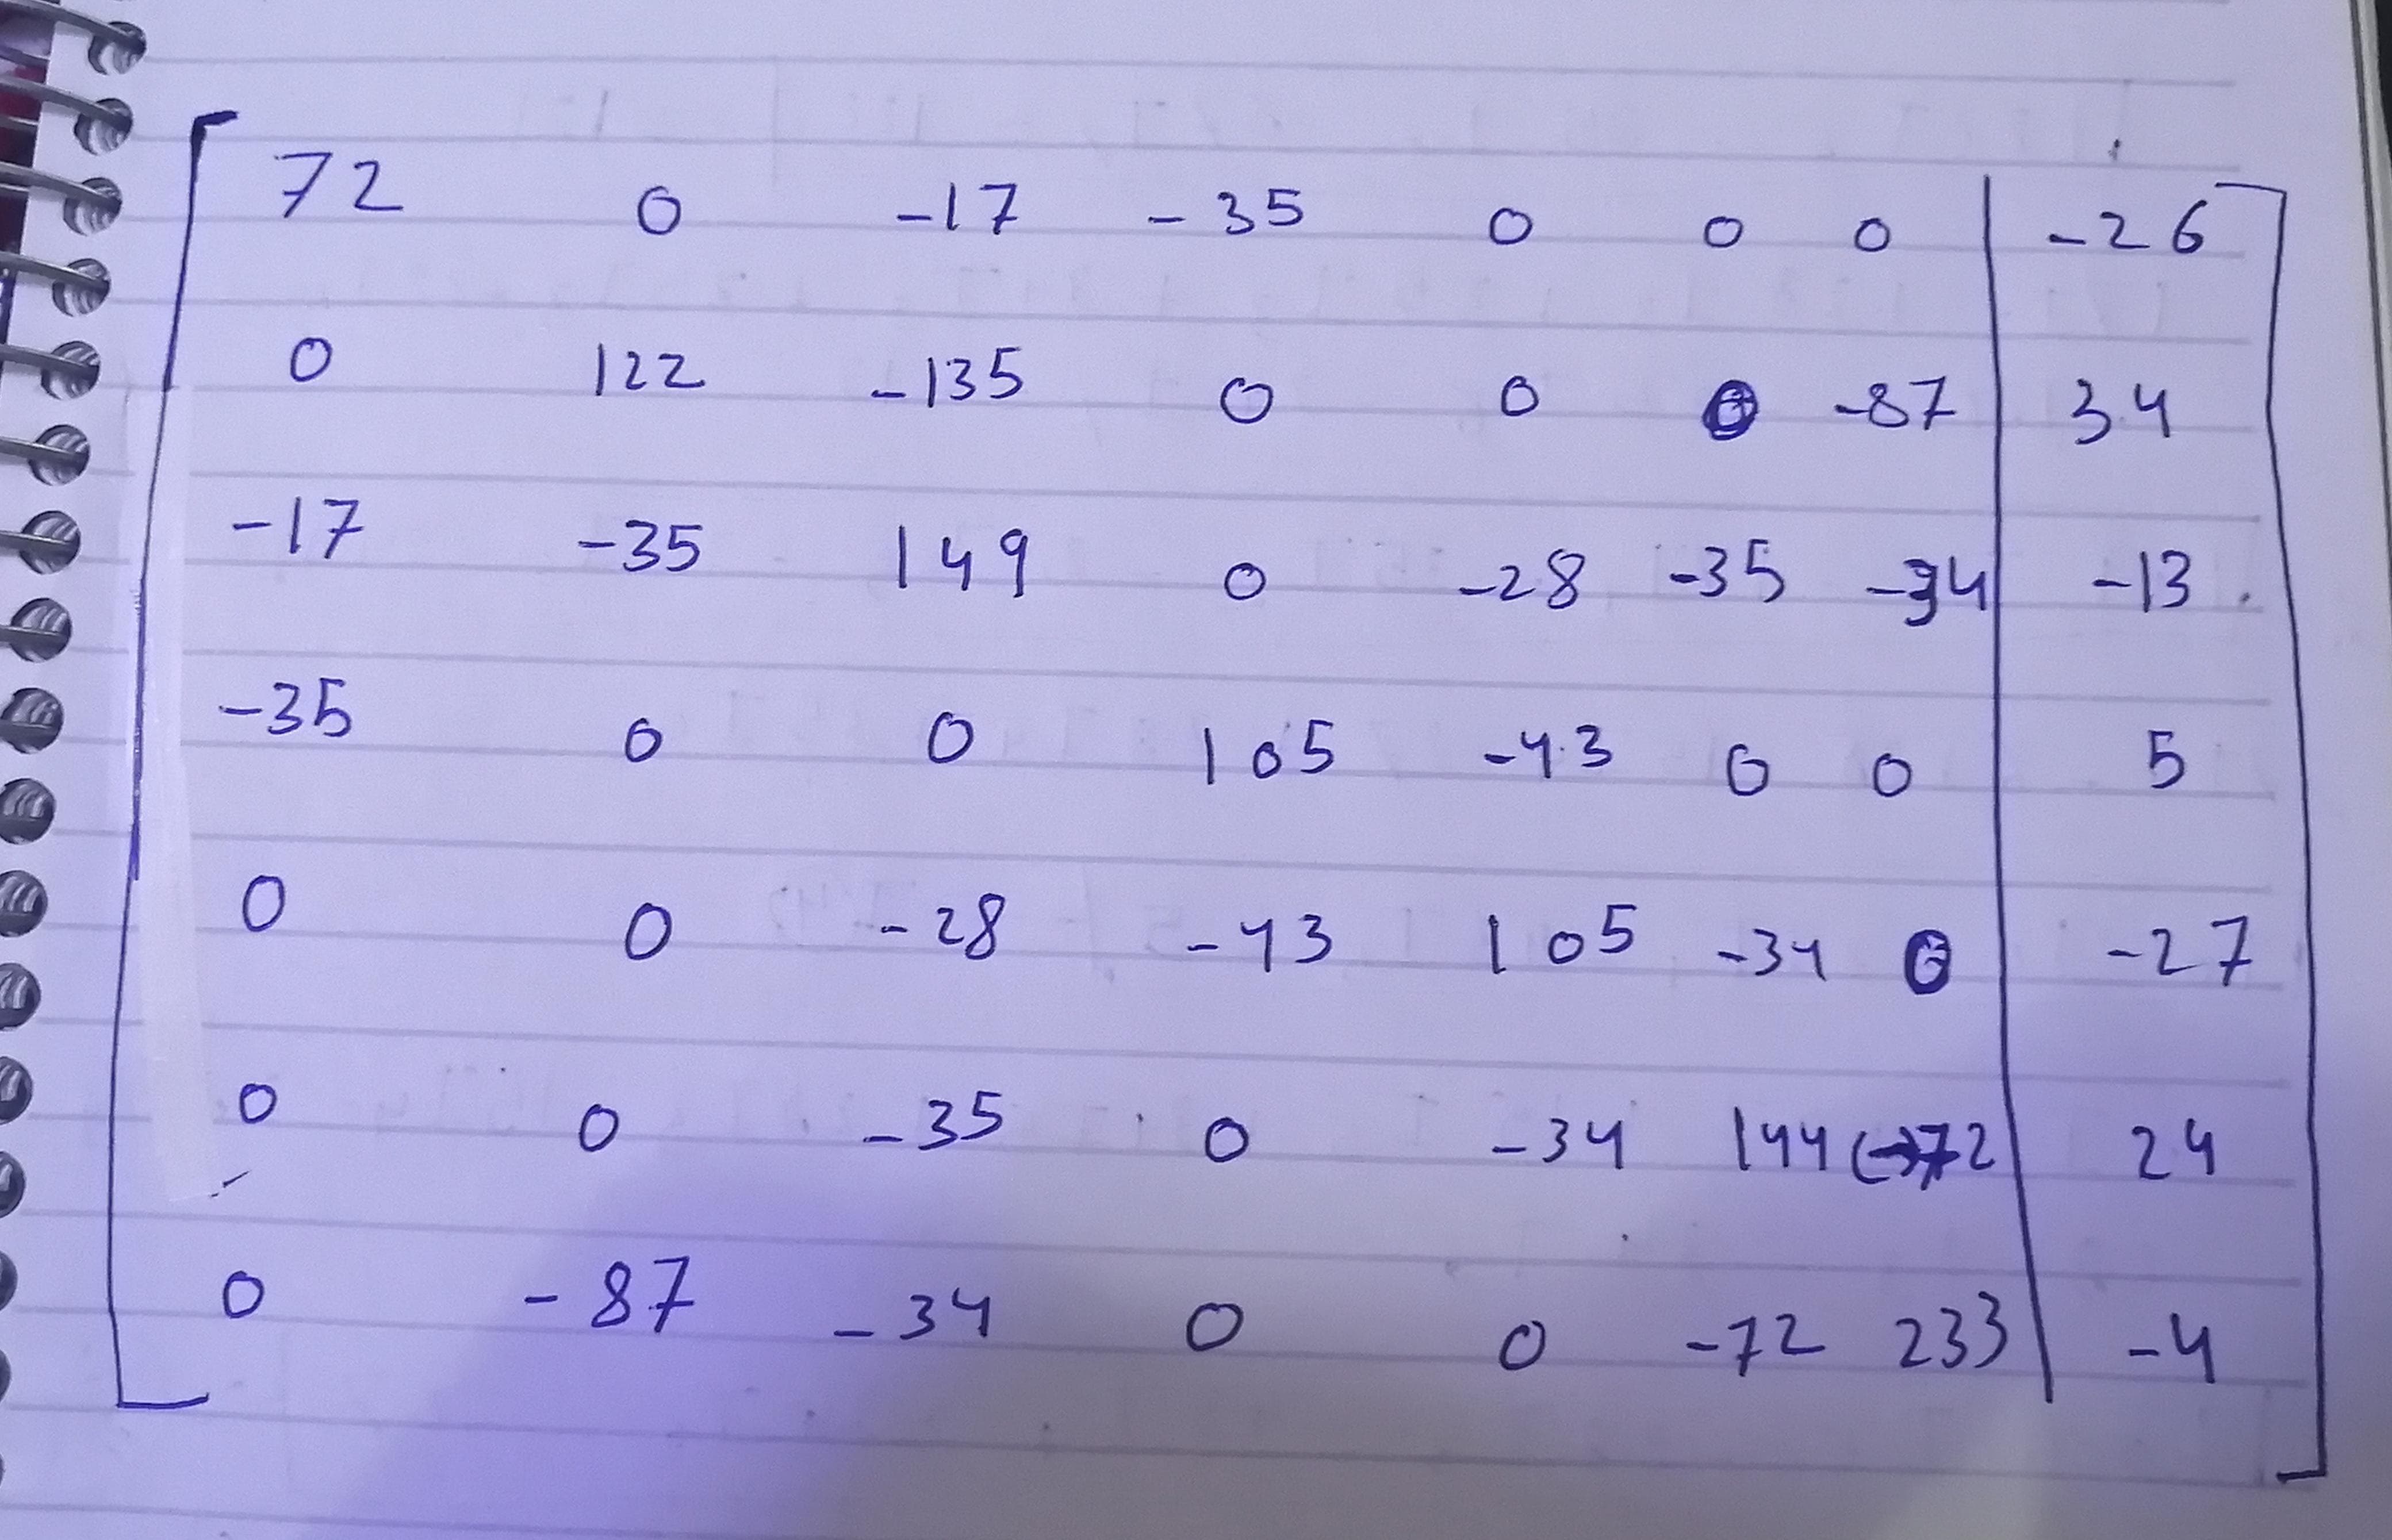 72 0 -17 -35 0 0 0 | -26
0 122 -135 0 0 0 -87 | 34
-17 -35 149 0 -28 -35 -34 | -13
-35 0 0 105 -43 0 0 | 5
0 0 -28 -43 105 -34 0 | -27
0 0 -35 0 -34 144 -72 | 24
0 -87 -34 0 0 -72 233 | -4